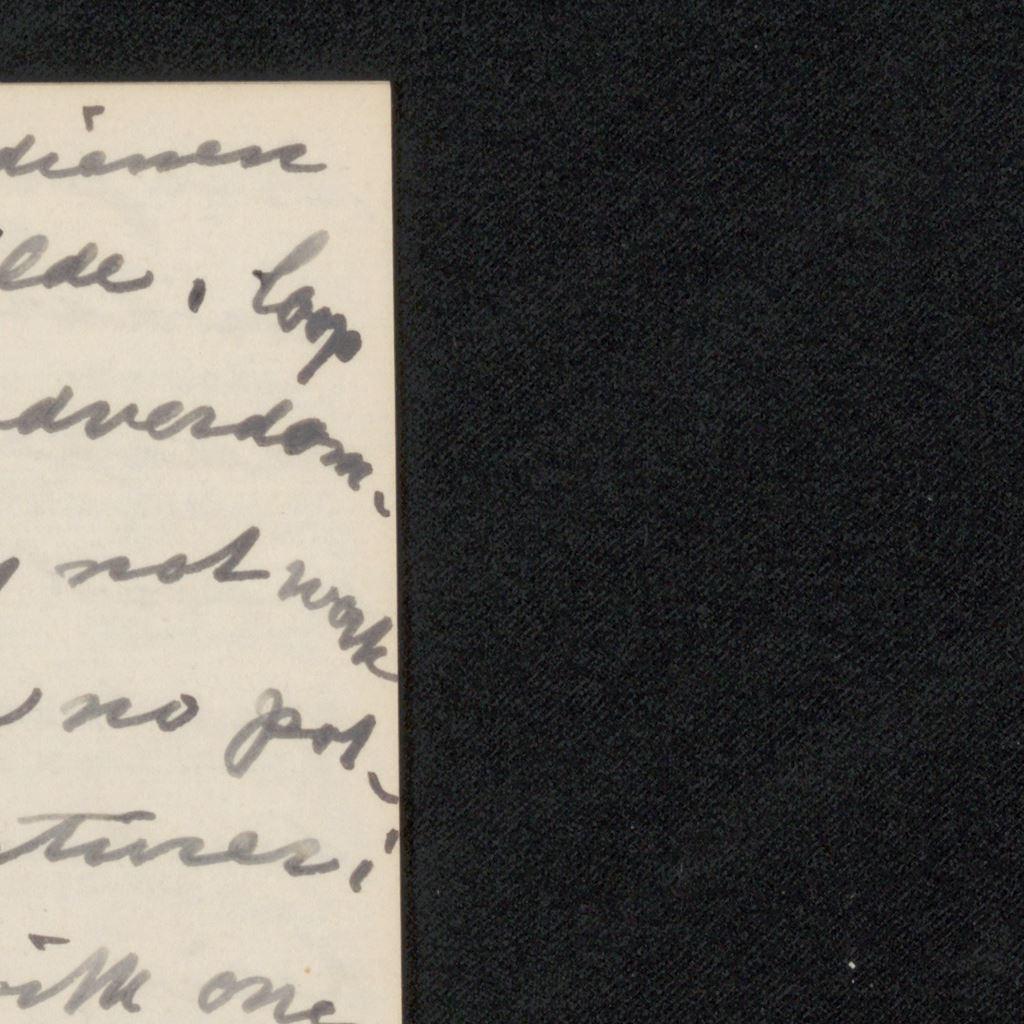 dienen
lde, loop
dverdom-
not work
no pot-
tures;
with one